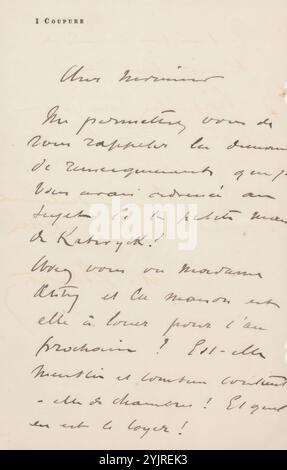 1 COUPURE
Cher Monsieur
Me permettez vous de
vous rappeler la deman
de renseignements que j
vous avais adressé au
sujet de la petite mai
de Katwyck!
Avez vous vu Madame
et la maison est
elle à louer pour l'an
prochain ? Est-elle
meublée et combien contient
-elle de chambres ! Et quel
en est le loyer !
alamy
Image ID: 2YJREK3
www.alamy.com